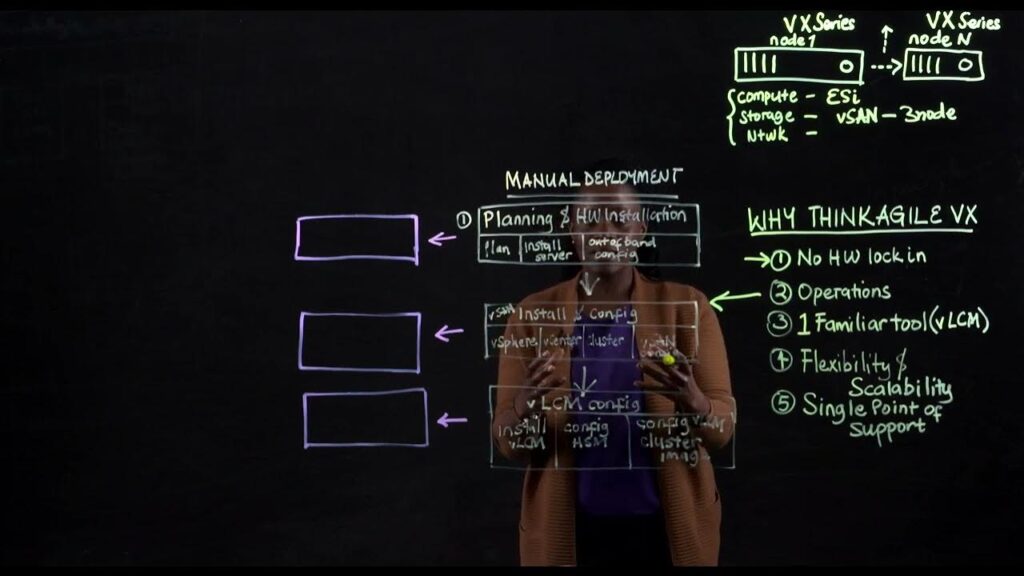 VX Series
node 1
VX Series
node N
compute - ESi
storage - vSAN - 3node
Ntwk -
MANUAL DEPLOYMENT
① Planning & HW Installation
Plan
install
server
out of band
config
vSAN Install & config
vSphere
vCenter
Cluster
vLCM config
Install
vLCM
config
HSM
config vLCM
cluster
image
WHY THINKAGILE VX
① No HW lock in
② Operations
③ 1 Familiar tool (vLCM)
④ Flexibility &
Scalability
⑤ Single Point of
support